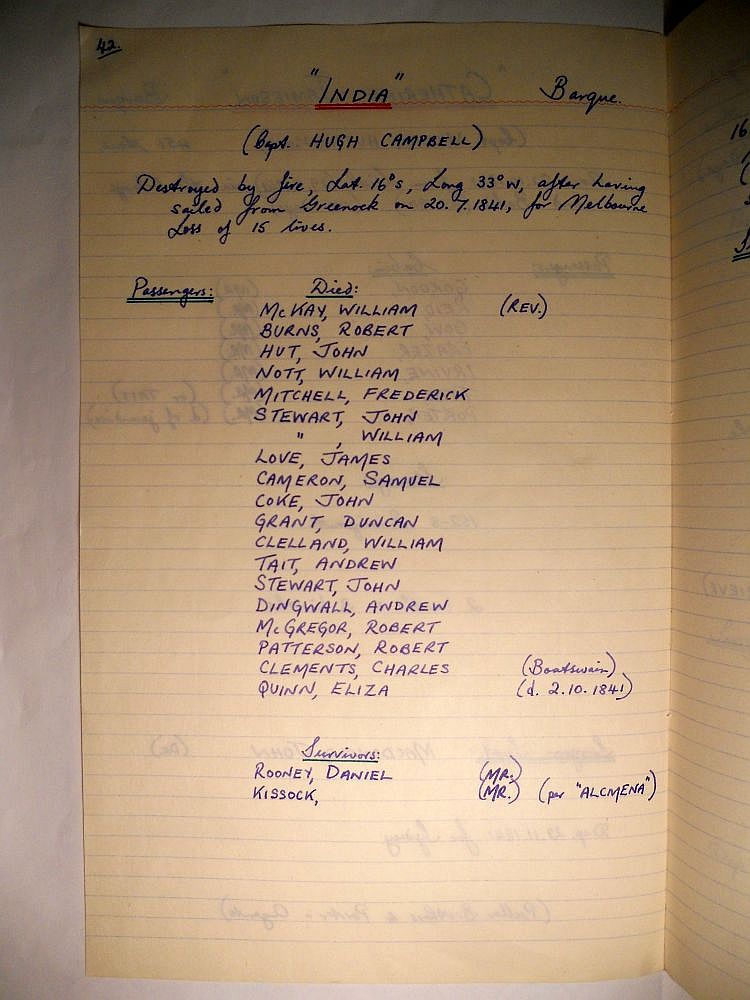 42.
"INDIA" Barque.
(Capt. HUGH CAMPBELL)
Destroyed by fire, Lat. 16°s, Long 33°W, after having
sailed from Greenock on 20.7.1841, for Melbourne
Loss of 15 lives.
Passengers: Died:
McKAY, WILLIAM (REV.)
BURNS, ROBERT
HUT, JOHN
NOTT, WILLIAM
MITCHELL, FREDERICK
STEWART, JOHN
" , WILLIAM
LOVE, JAMES
CAMERON, SAMUEL
COKE, JOHN
GRANT, DUNCAN
CLELLAND, WILLIAM
TAIT, ANDREW
STEWART, JOHN
DINGWALL, ANDREW
McGREGOR, ROBERT
PATTERSON, ROBERT
CLEMENTS, CHARLES (Boatswain)
QUINN, ELIZA (d. 2.10.1841)
Survivors:
ROONEY, DANIEL (MR.)
KISSOCK, (MR.) (per "ALCMENA")
16